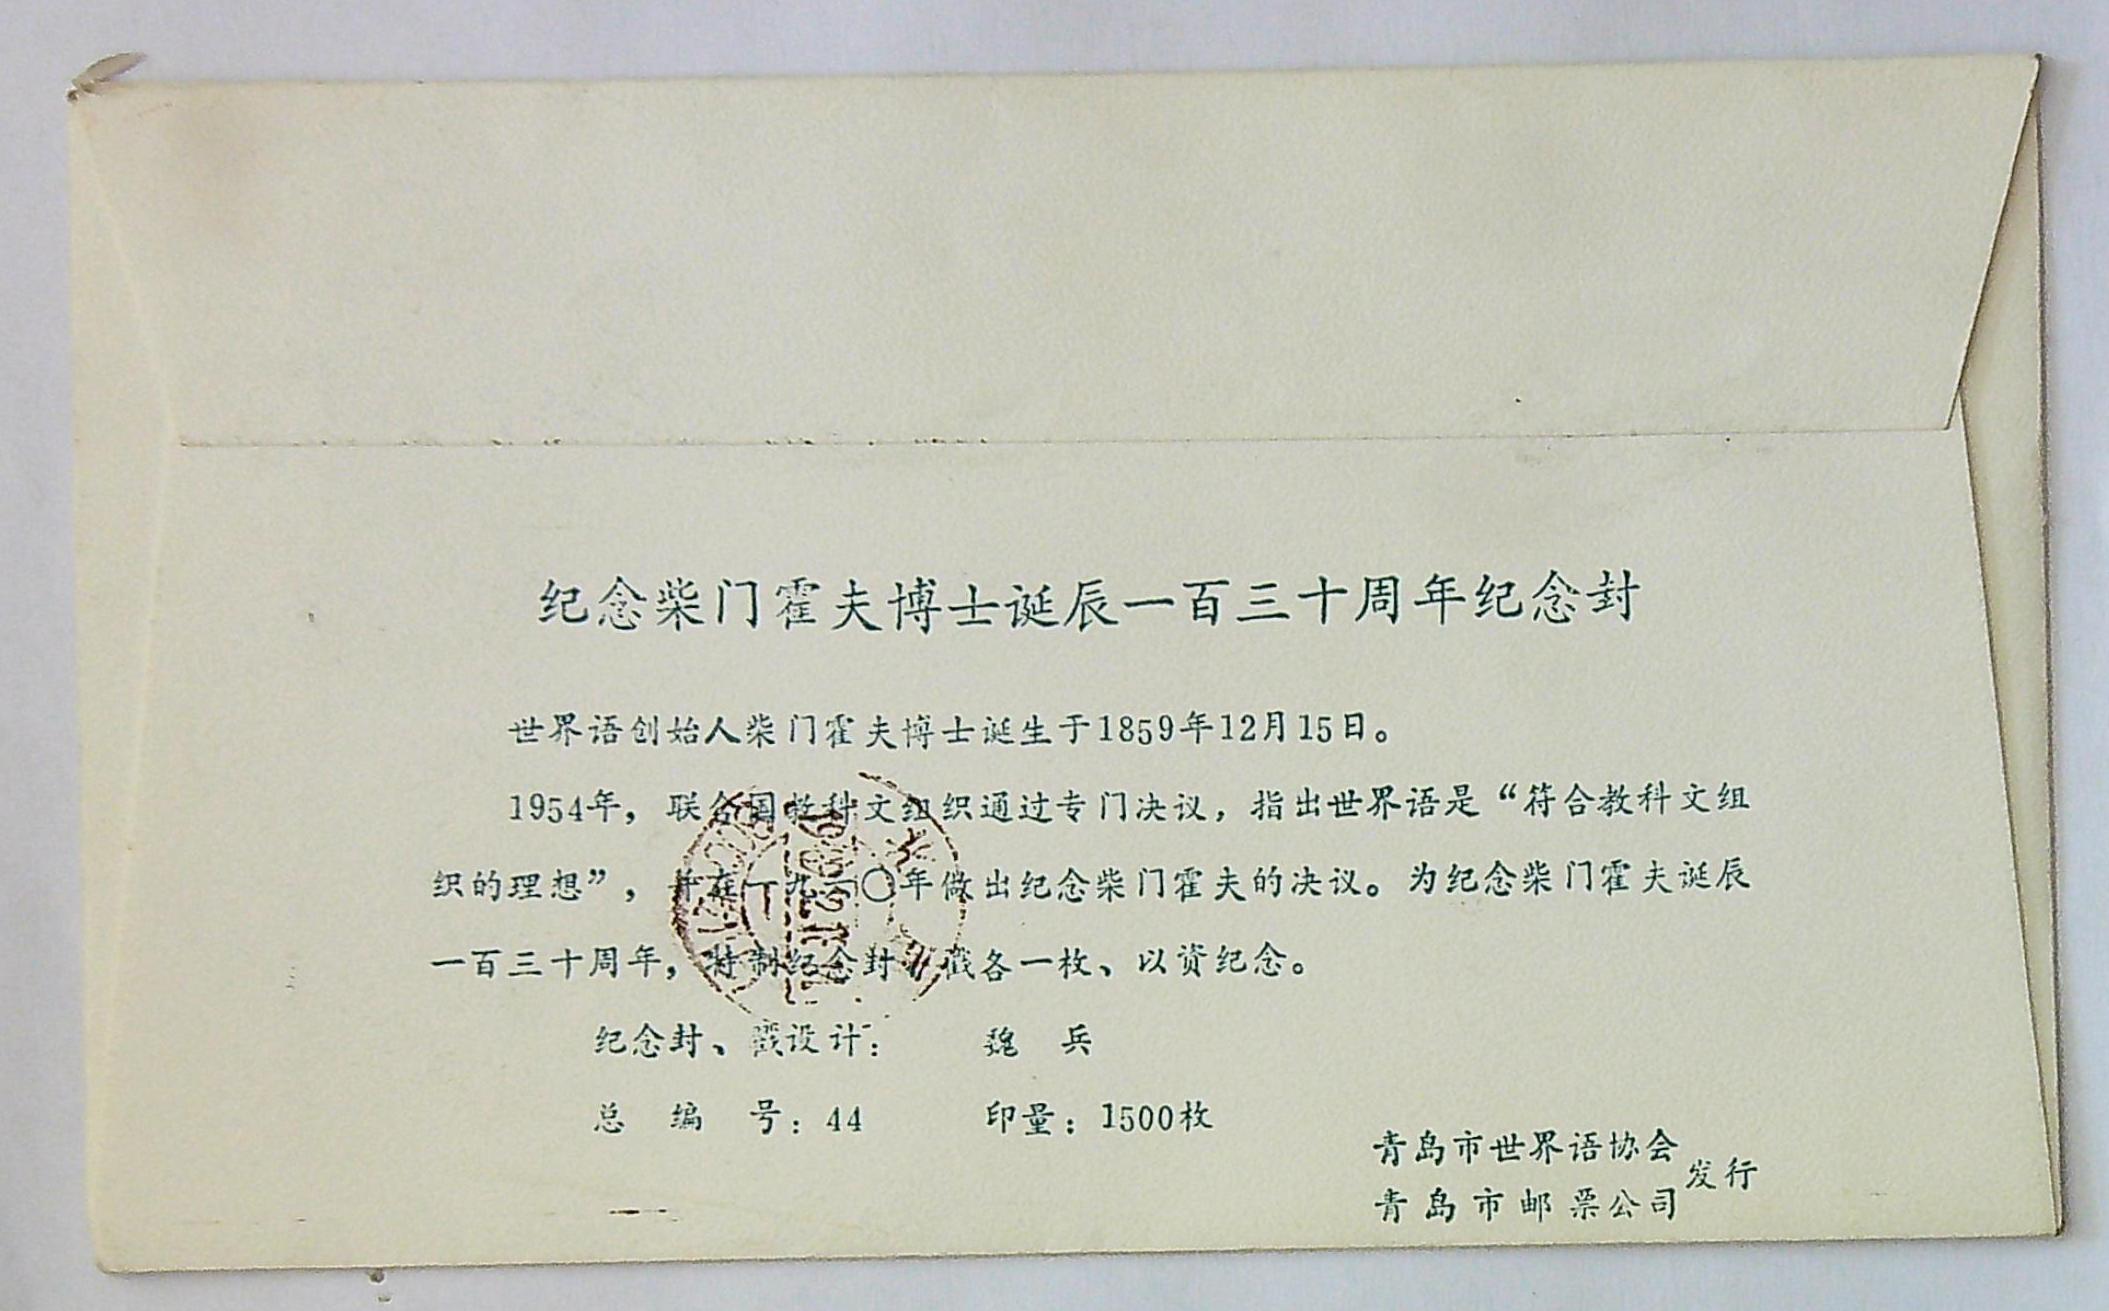 纪念柴门霍夫博士诞辰一百三十周年纪念封
世界语创始人柴门霍夫博士诞生于1859年12月15日。
1954年，联合国教科文组织通过专门决议，指出世界语是“符合教科文组
织的理想”，并在一九六〇年做出纪念柴门霍夫的决议。为纪念柴门霍夫诞辰
一百三十周年，特制纪念封、戳各一枚、以资纪念。
纪念封、戳设计： 魏 兵
总 编 号：44 印量：1500枚
青岛市世界语协会
青岛市邮票公司 发行